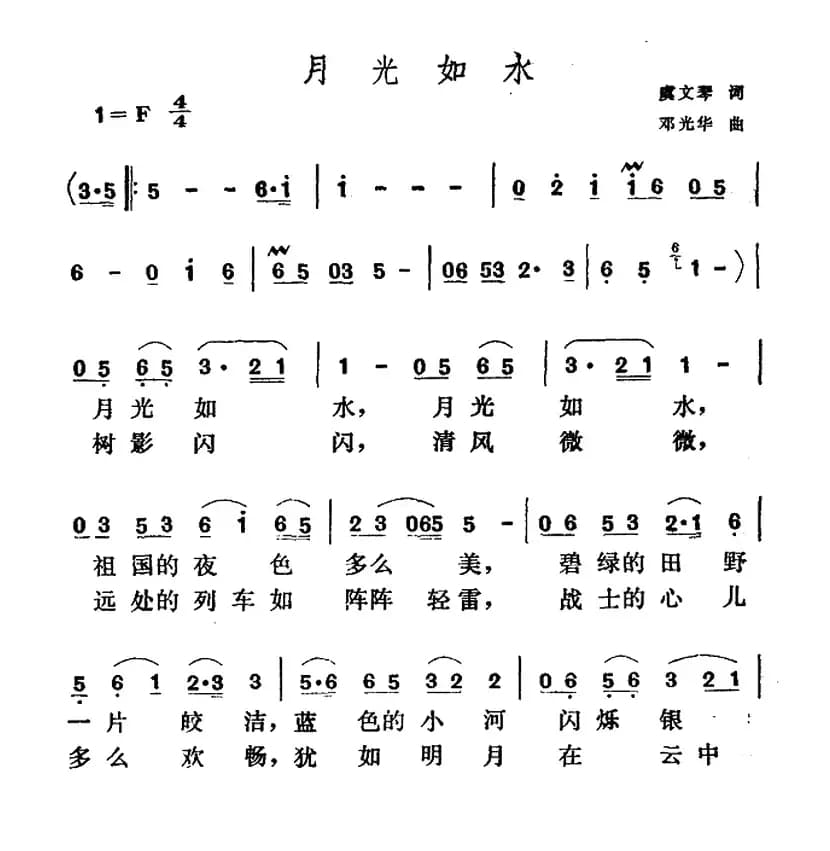 月光如水
1=F 4/4
虞文琴 词
邓光华 曲
(3·5 ‖: 5 - - 6·i | i - - - | 0 2 i i 6 0 5 |
6 - 0 i 6 | 6 5 03 5 - | 06 53 2· 3 | 6 5 1 - ) |
0 5 6 5 3· 2 1 | 1 - 0 5 6 5 | 3· 2 1 1 - |
月光如水，月光如水，
树影闪闪，清风微微，
0 3 5 3 6 i 6 5 | 2 3 065 5 - | 0 6 5 3 2·1 6 |
祖国的夜色多么美，碧绿的田野
远处的列车如阵阵轻雷，战士的心儿
5 6 1 2·3 3 | 5·6 6 5 3 2 2 | 0 6 5 6 3 2 1 |
一片皎洁，蓝色的小河闪烁银
多么欢畅，犹如明月在云中